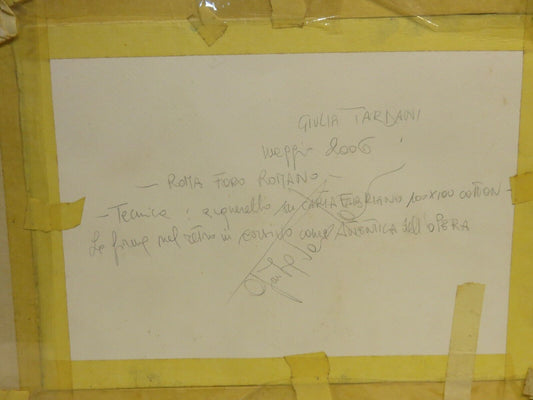 GIULIA TARDANI
maggio 2006
— ROMA FORO ROMANO —
- Tecnica : acquerello su CARTA FABRIANO 100x100 COTTON -
La firma nel retro in corsivo come AUTENTICA dell'OPERA